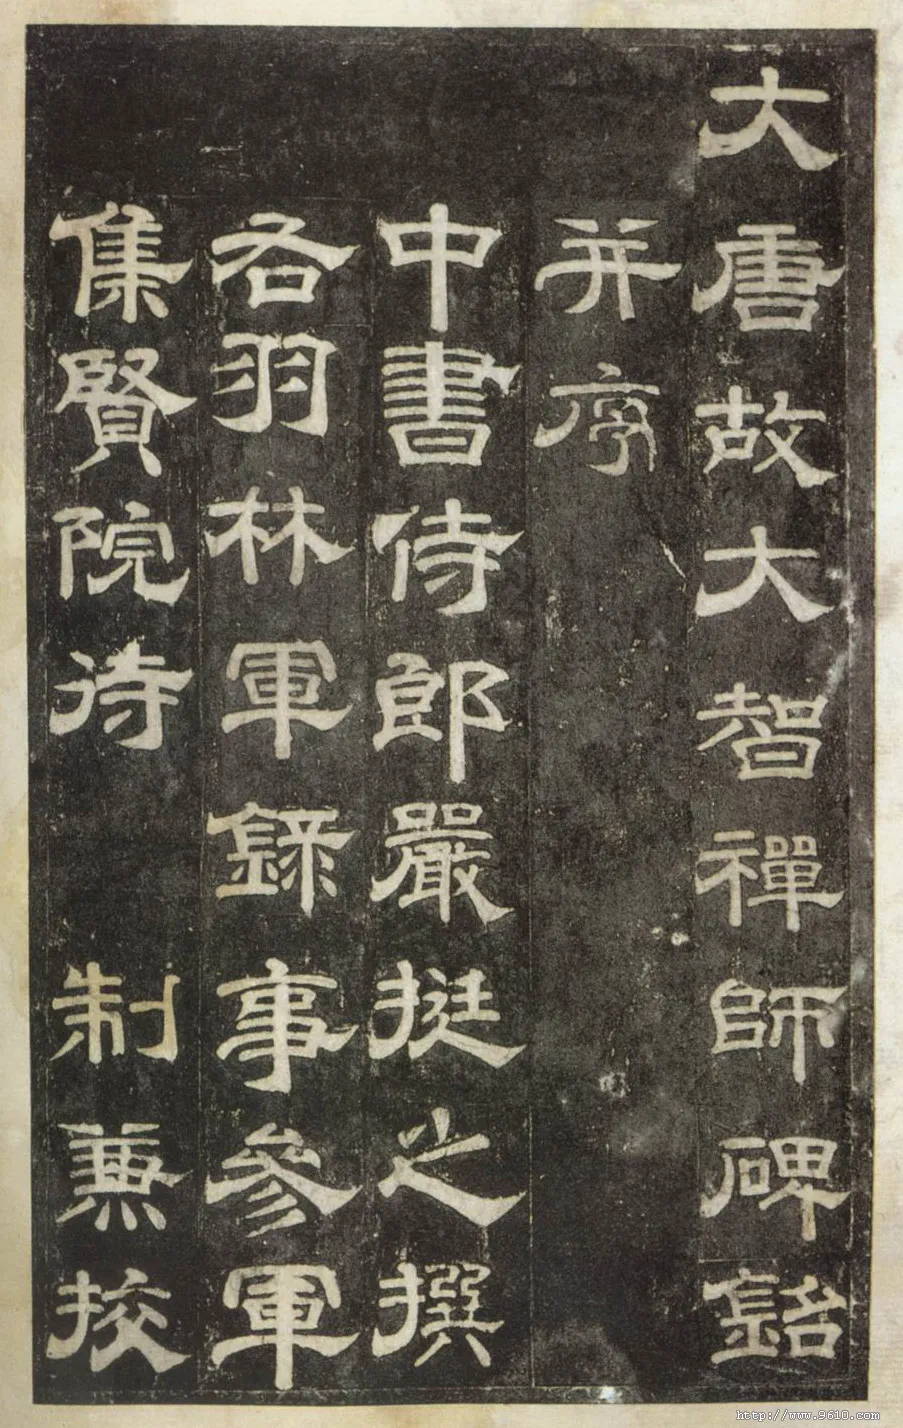 大唐故大智禪師碑銘
并序
中書侍郎嚴挺之撰
右羽林軍錄事參軍
集賢院待制兼挍
http://www.9610.com